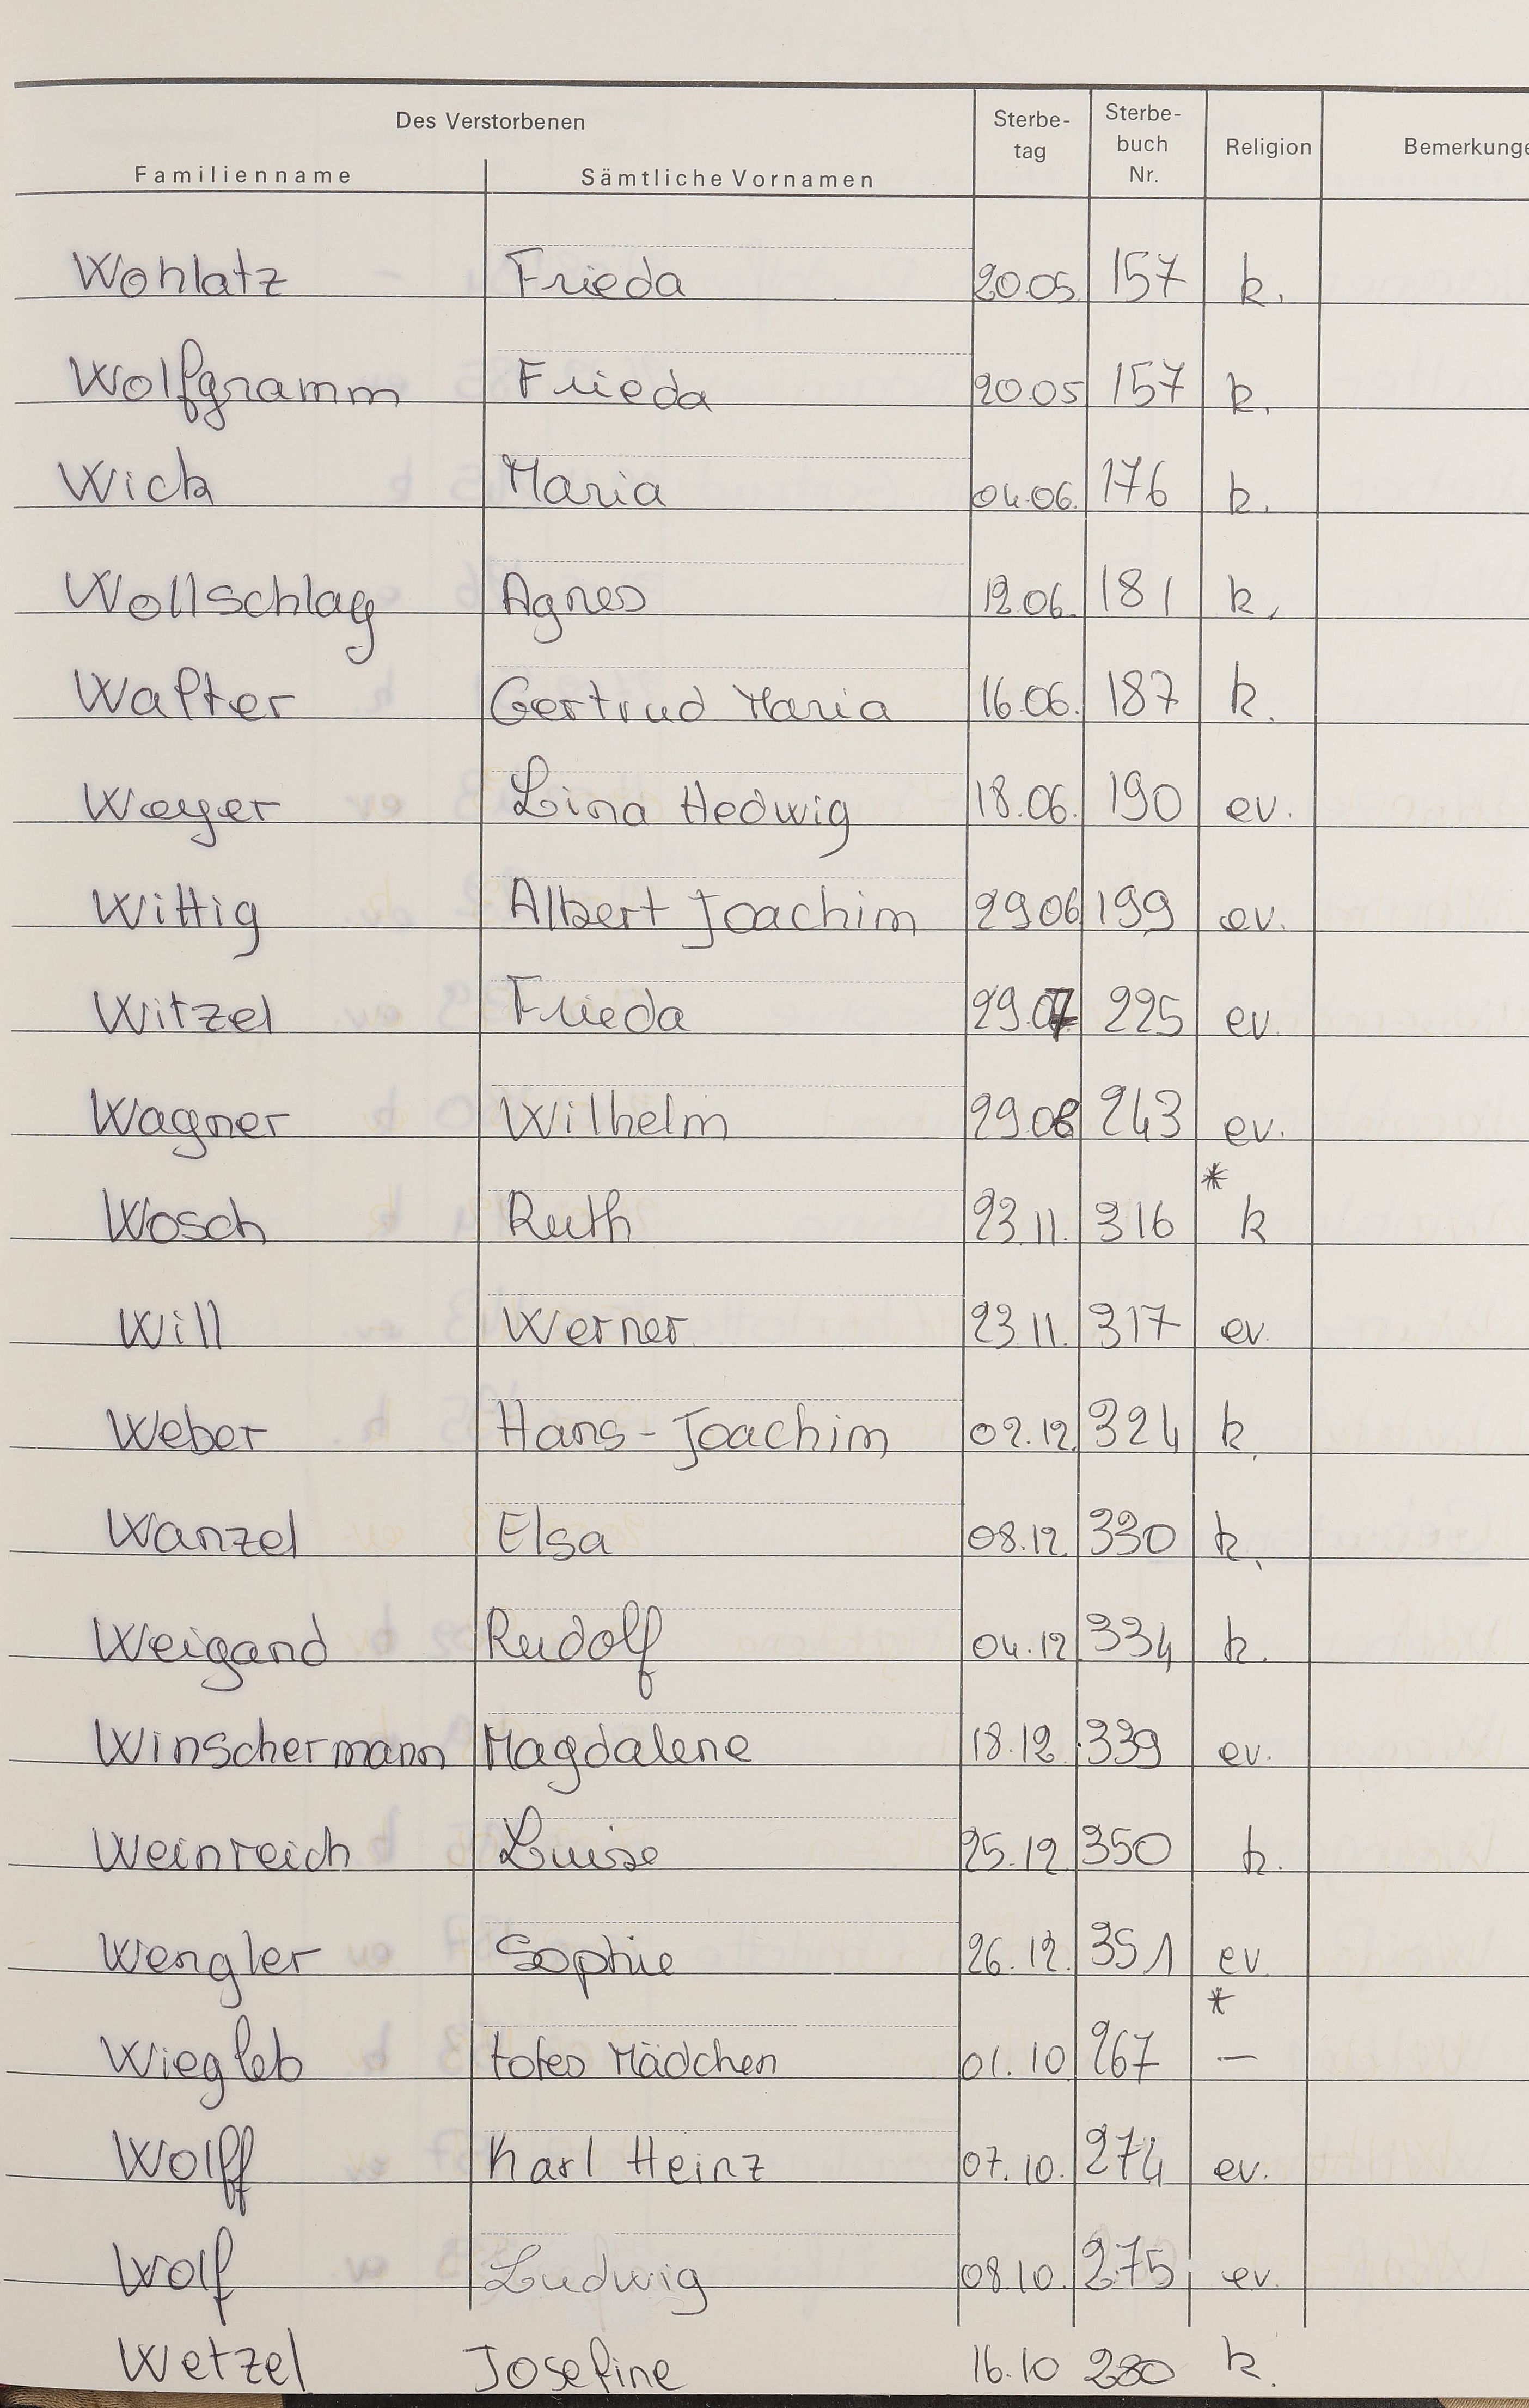 Des Verstorbenen
Familienname Sämtliche Vornamen Sterbe-tag Sterbe-buch Nr. Religion Bemerkunge
Wohlatz Frieda 20.05. 157 k.
Wolfgramm Frieda 20.05 157 k.
Wick Maria 04.06. 176 k.
Wollschlag Agnes 12.06. 181 k.
Walter Gertrud Maria 16.06. 187 k.
Weyer Lina Hedwig 18.06. 190 ev.
Wittig Albert Joachim 29.06 199 ev.
Witzel Frieda 29.07 225 ev.
Wagner Wilhelm 29.08 243 ev.
*
Wosch Ruth 23.11. 316 k
Will Werner 23.11. 317 ev.
Weber Hans-Joachim 02.12. 324 k.
Wanzel Elsa 08.12. 330 k.
Weigand Rudolf 04.12 334 k.
Winschermann Magdalene 18.12. 339 ev.
Weinreich Luise 25.12 350 k.
Wengler Sophie 26.12. 351 ev
*
Wiegleb totes Mädchen 01.10 267 —
Wolff Karl Heinz 07.10. 274 ev.
Wolf Ludwig 08.10. 275 ev.
Wetzel Josefine 16.10 280 k.